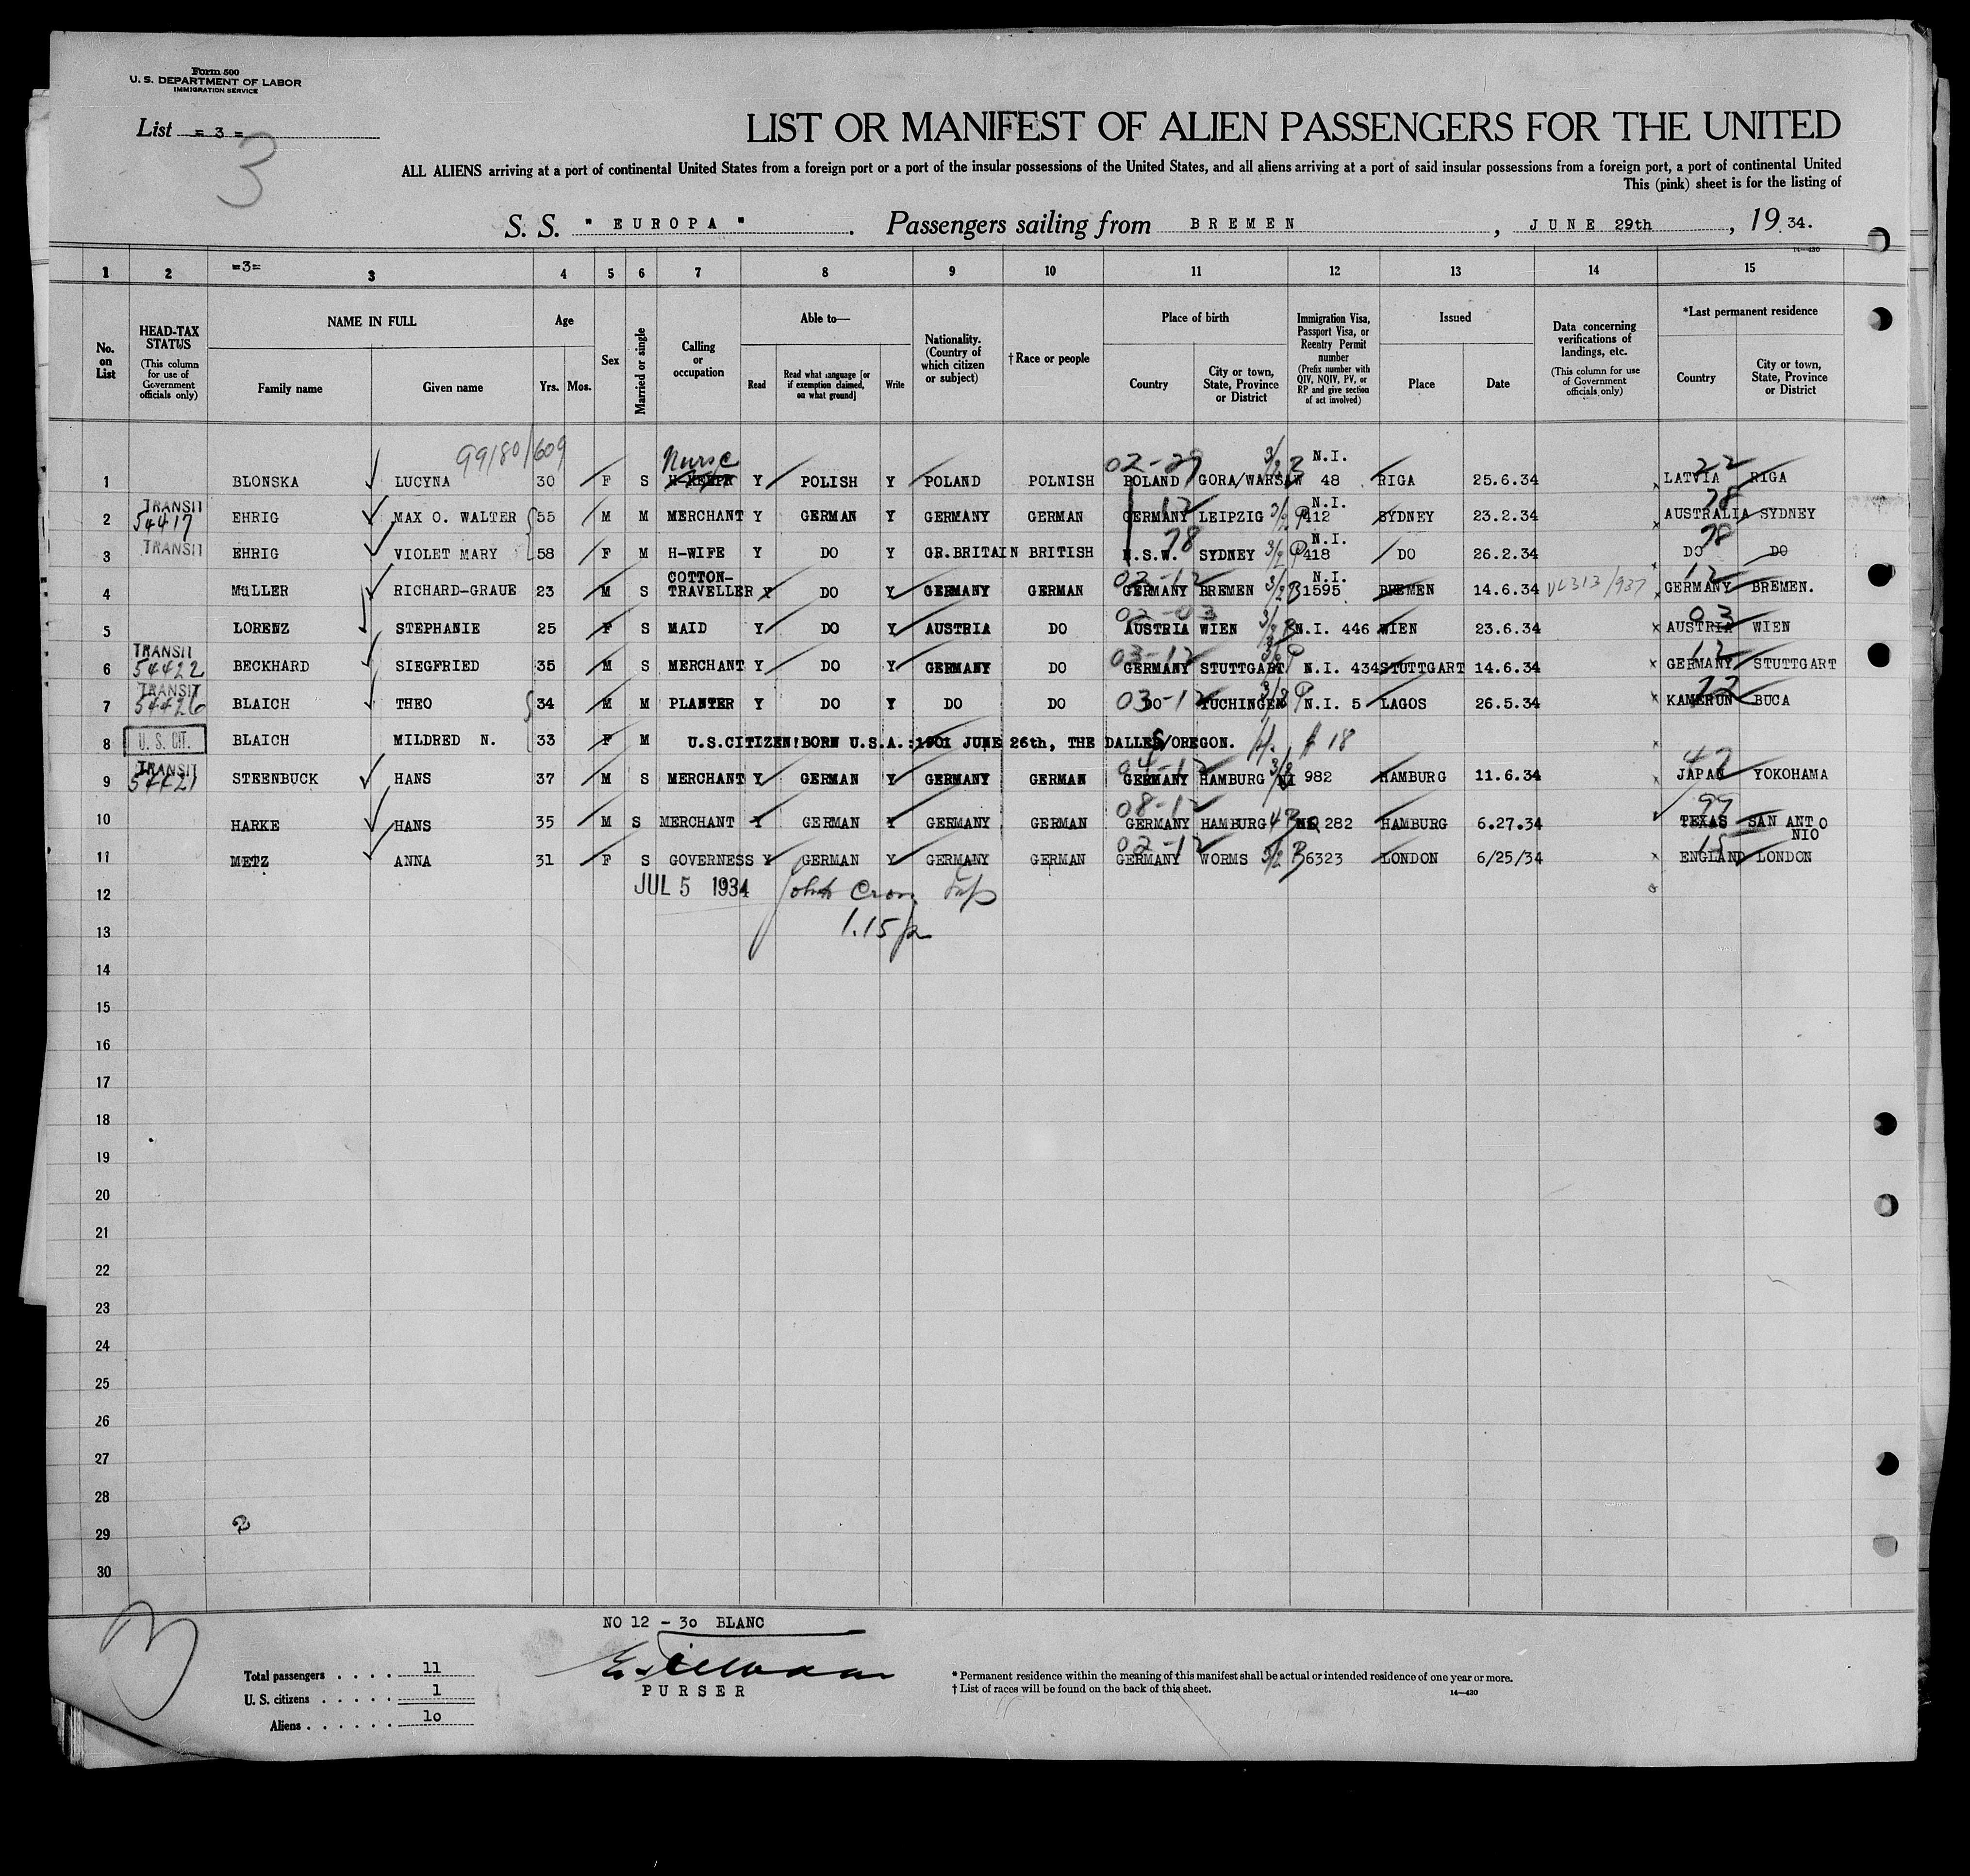 Form 500
U. S. DEPARTMENT OF LABOR
IMMIGRATION SERVICE
List = 3 =
3
LIST OR MANIFEST OF ALIEN PASSENGERS FOR THE UNITED
ALL ALIENS arriving at a port of continental United States from a foreign port or a port of the insular possessions of the United States, and all aliens arriving at a port of said insular possessions from a foreign port, a port of continental United
This (pink) sheet is for the listing of
S. S. " EUROPA ". Passengers sailing from BREMEN, JUNE 29th, 19 34.
14-430
1 2 =3= 3 4 5 6 7 8 9 10 11 12 13 14 15
No. on List
HEAD-TAX STATUS (This column for use of Government officials only)
NAME IN FULL
Family name Given name
Age
Yrs. Mos.
Sex
Married or single
Calling or occupation
Able to—
Read Read what language [or if exemption claimed, on what ground] Write
Nationality. (Country of which citizen or subject)
†Race or people
Place of birth
Country City or town, State, Province or District
Immigration Visa, Passport Visa, or Reentry Permit number (Prefix number with QIV, NQIV, PV, or RP and give section of act involved)
Issued
Place Date
Data concerning verifications of landings, etc. (This column for use of Government officials only)
*Last permanent residence
Country City or town, State, Province or District
99180/609 Nurse 02-29 3/2 N.I. 22
1 BLONSKA LUCYNA 30 F S Y POLISH Y POLAND POLNISH POLAND GORA/WARSAW 48 RIGA 25.6.34 LATVIA RIGA
TRANSIT 12 N.I. 78
2 54417 EHRIG MAX O. WALTER 55 M M MERCHANT Y GERMAN Y GERMANY GERMAN GERMANY LEIPZIG 3/2 P 412 SYDNEY 23.2.34 AUSTRALIA SYDNEY
78 N.I. 78
3 TRANSIT EHRIG VIOLET MARY 58 F M H-WIFE Y DO Y GR.BRITAIN BRITISH N.S.W. SYDNEY 3/2 P 418 DO 26.2.34 DO DO
COTTON- 02-12 N.I. 12
4 MüLLER RICHARD-GRAUE 23 M S TRAVELLER Y DO Y GERMANY GERMAN GERMANY BREMEN 3/2 B 1595 BREMEN 14.6.34 VL313/937 GERMANY BREMEN.
02-03 03
5 LORENZ STEPHANIE 25 F S MAID Y DO Y AUSTRIA DO AUSTRIA WIEN N.I. 446 WIEN 23.6.34 AUSTRIA WIEN
TRANSIT 03-12 12
6 54422 BECKHARD SIEGFRIED 35 M S MERCHANT Y DO Y GERMANY DO GERMANY STUTTGART N.I. 434 STUTTGART 14.6.34 GERMANY STUTTGART
TRANSIT
7 54426 BLAICH THEO 34 M M PLANTER Y DO Y DO DO 03-12 DO TUCHINGEN P N.I. 5 LAGOS 26.5.34 KAMERUN BUCA
8 U. S. CIT. BLAICH MILDRED N. 33 F M U.S.CITIZEN!BORN U.S.A.:1901 JUNE 26th, THE DALLES/OREGON. # 18
TRANSIT 04-12 42
9 54421 STEENBUCK HANS 37 M S MERCHANT Y GERMAN Y GERMANY GERMAN GERMANY HAMBURG NI 982 HAMBURG 11.6.34 JAPAN YOKOHAMA
08-12 99
10 HARKE HANS 35 M S MERCHANT Y GERMAN Y GERMANY GERMAN GERMANY HAMBURG 282 HAMBURG 6.27.34 TEXAS SAN ANTO
NIO
02-12 15
11 METZ ANNA 31 F S GOVERNESS Y GERMAN Y GERMANY GERMAN GERMANY WORMS 3/2 B 6323 LONDON 6/25/34 ENGLAND LONDON
12 JUL 5 1934 John
13 1.15 p
14
15
16
17
18
19
20
21
22
23
24
25
26
27
28
29
30
3
NO 12 - 30 BLANC
PURSER
Total passengers . . . . 11
U. S. citizens . . . . . 1
Aliens . . . . . . 10
* Permanent residence within the meaning of this manifest shall be actual or intended residence of one year or more.
† List of races will be found on the back of this sheet.
14-430